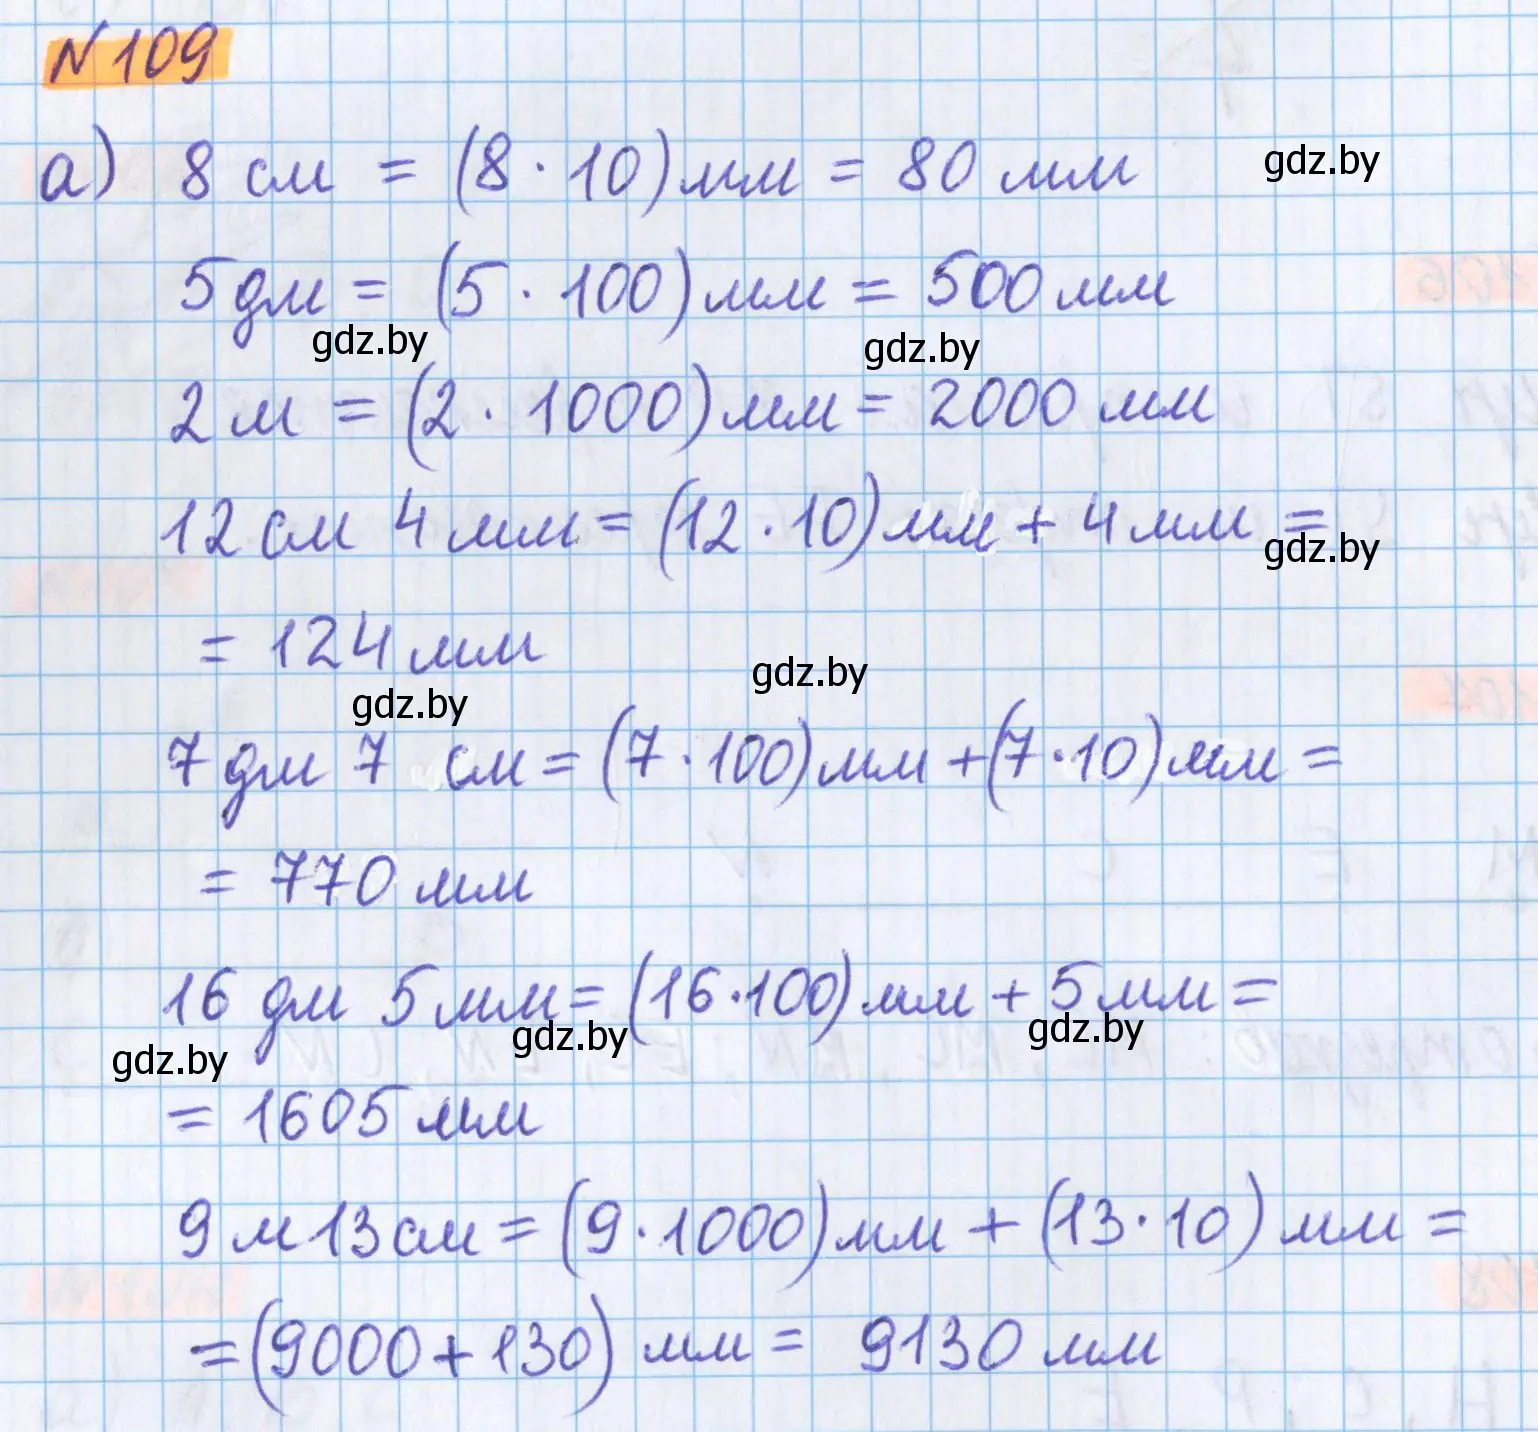 N109
а) 8 см = (8 · 10) мм = 80 мм
gdz.by
5 дм = (5 · 100) мм = 500 мм
gdz.by gdz.by
2 м = (2 · 1000) мм = 2000 мм
12 см 4 мм = (12 · 10) мм + 4 мм =
gdz.by
= 124 мм
gdz.by gdz.by
7 дм 7 см = (7 · 100) мм + (7 · 10) мм =
= 770 мм
16 дм 5 мм = (16 · 100) мм + 5 мм =
gdz.by gdz.by gdz.by
= 1605 мм
9 м 13 см = (9 · 1000) мм + (13 · 10) мм =
= (9000 + 130) мм = 9130 мм